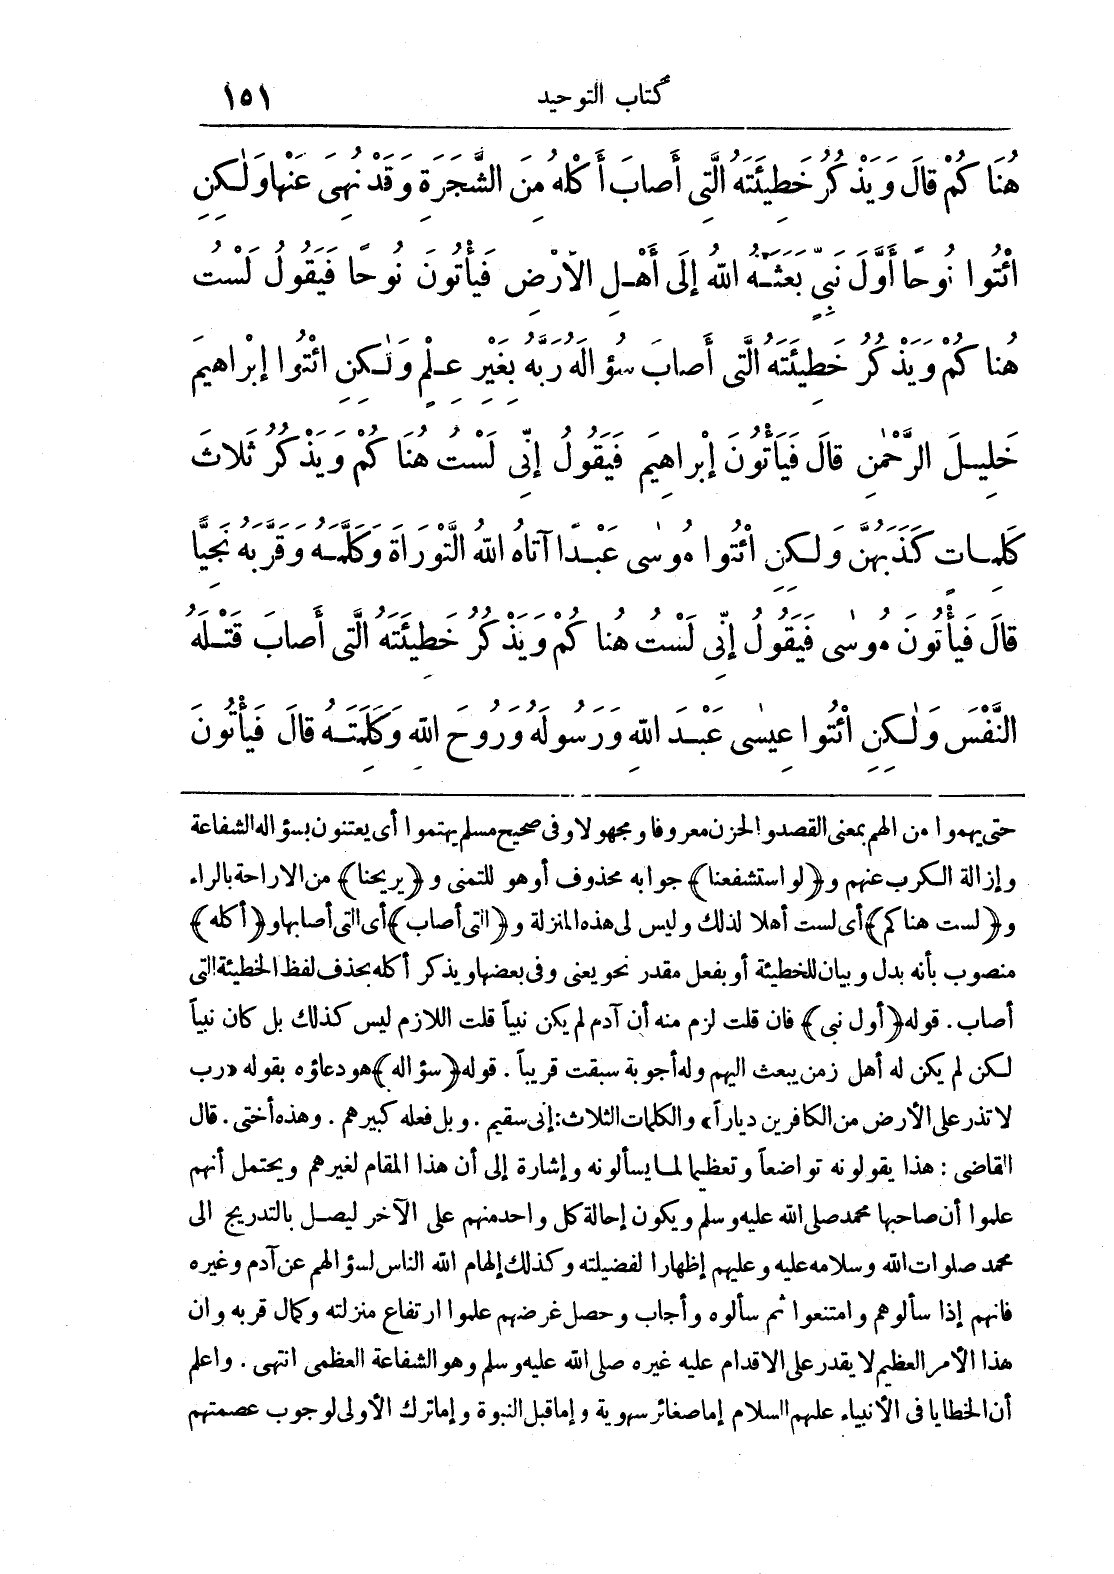 كتاب التوحيد ١٥١
هُنَاكُمْ قَالَ وَيَذْكُرُ خَطِيئَتَهُ الَّتِي أَصَابَ أَكْلَهُ مِنَ الشَّجَرَةِ وَقَدْ نُهِيَ عَنْهَا وَلٰكِنِ
ائْتُوا نُوحًا أَوَّلَ نَبِيٍّ بَعَثَهُ اللهُ إِلَى أَهْلِ الأَرْضِ فَيَأْتُونَ نُوحًا فَيَقُولُ لَسْتُ
هُنَاكُمْ وَيَذْكُرُ خَطِيئَتَهُ الَّتِي أَصَابَ سُؤَالَهُ رَبَّهُ بِغَيْرِ عِلْمٍ وَلٰكِنِ ائْتُوا إِبْرَاهِيمَ
خَلِيلَ الرَّحْمٰنِ قَالَ فَيَأْتُونَ إِبْرَاهِيمَ فَيَقُولُ إِنِّي لَسْتُ هُنَاكُمْ وَيَذْكُرُ ثَلَاثَ
كَلِمَاتٍ كَذَبَهُنَّ وَلٰكِنِ ائْتُوا مُوسٰى عَبْدًا آتَاهُ اللهُ التَّوْرَاةَ وَكَلَّمَهُ وَقَرَّبَهُ نَجِيًّا
قَالَ فَيَأْتُونَ مُوسٰى فَيَقُولُ إِنِّي لَسْتُ هُنَاكُمْ وَيَذْكُرُ خَطِيئَتَهُ الَّتِي أَصَابَ قَتْلَهُ
النَّفْسَ وَلٰكِنِ ائْتُوا عِيسٰى عَبْدَ اللهِ وَرَسُولَهُ وَرُوحَ اللهِ وَكَلِمَتَهُ قَالَ فَيَأْتُونَ
حتى يهموا من الهم بمعنى القصد والحزن معروفا ومجهولا وفى صحيح مسلم يهتموا أى يعتنون بسؤاله الشفاعة
وإزالة الكرب عنهم و﴿لو استشفعنا﴾ جوابه محذوف أو هو للتمنى و﴿يريحنا﴾ من الاراحة بالراء
و﴿لست هناكم﴾ أى لست أهلا لذلك وليس لى هذه المنزلة و﴿التى أصاب﴾ أى التى أصابها و﴿أكله﴾
منصوب بأنه بدل وبيان للخطيئة أو بفعل مقدر نحو يعنى وفى بعضها ويذكر أكله بحذف لفظ الخطيئة التى
أصاب. قوله ﴿أول نبى﴾ فان قلت لزم منه أن آدم لم يكن نبياً قلت اللازم ليس كذلك بل كان نبياً
لكن لم يكن له أهل زمن يبعث اليهم وله أجوبة سبقت قريباً. قوله ﴿سؤاله﴾ هو دعاؤه بقوله «رب
لا تذر على الأرض من الكافرين دياراً» والكلمات الثلاث: إنى سقيم. وبل فعله كبيرهم. وهذه أختى. قال
القاضى: هذا يقولونه تواضعاً وتعظيما لما يسألونه وإشارة إلى أن هذا المقام لغيرهم ويحتمل أنهم
علموا أن صاحبها محمد صلى الله عليه وسلم ويكون إحالة كل واحد منهم على الآخر ليصل بالتدريج الى
محمد صلوات الله وسلامه عليه وعليهم إظهارا لفضيلته وكذلك إلهام الله الناس لسؤالهم عن آدم وغيره
فانهم إذا سألوهم وامتنعوا ثم سألوه وأجاب وحصل غرضهم علموا ارتفاع منزلته وكمال قربه وان
هذا الأمر العظيم لا يقدر على الاقدام عليه غيره صلى الله عليه وسلم وهو الشفاعة العظمى انتهى. واعلم
أن الخطايا فى الأنبياء عليهم السلام إما صغائر سهوية وإما قبل النبوة وإما ترك الأولى لوجوب عصمتهم